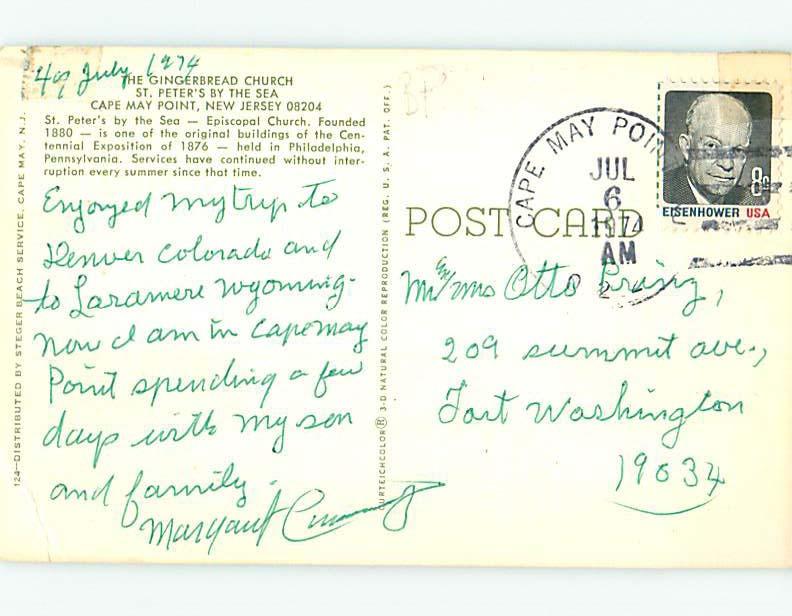 4 of July 1974
THE GINGERBREAD CHURCH
ST. PETER'S BY THE SEA
CAPE MAY POINT, NEW JERSEY 08204
St. Peter's by the Sea — Episcopal Church. Founded
1880 — is one of the original buildings of the Cen-
tennial Exposition of 1876 — held in Philadelphia,
Pennsylvania. Services have continued without inter-
ruption every summer since that time.
Enjoyed my trip to
Denver Colorado and
to Laramere Wyoming.
now I am in Cape May
Point spending a few
days with my son
and family.
Margaret
124—DISTRIBUTED BY STEGER BEACH SERVICE, CAPE MAY, N.J.
CURTEICHCOLOR® 3-D NATURAL COLOR REPRODUCTION (REG. U. S. A. PAT. OFF.)
POST CARD
CAPE MAY POIN
JUL
6
1974
AM
8c
EISENHOWER USA
Mr/mrs Otto Prinz,
209 summit ave.,
Fort Washington
19034